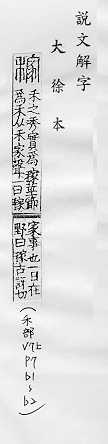 說文解字
大徐本
稼
禾之秀實爲稼莖節
爲禾从禾家聲一曰稼
家事也一曰在
野曰稼古訝切
(禾部
V7上
P7
b1~
b2)